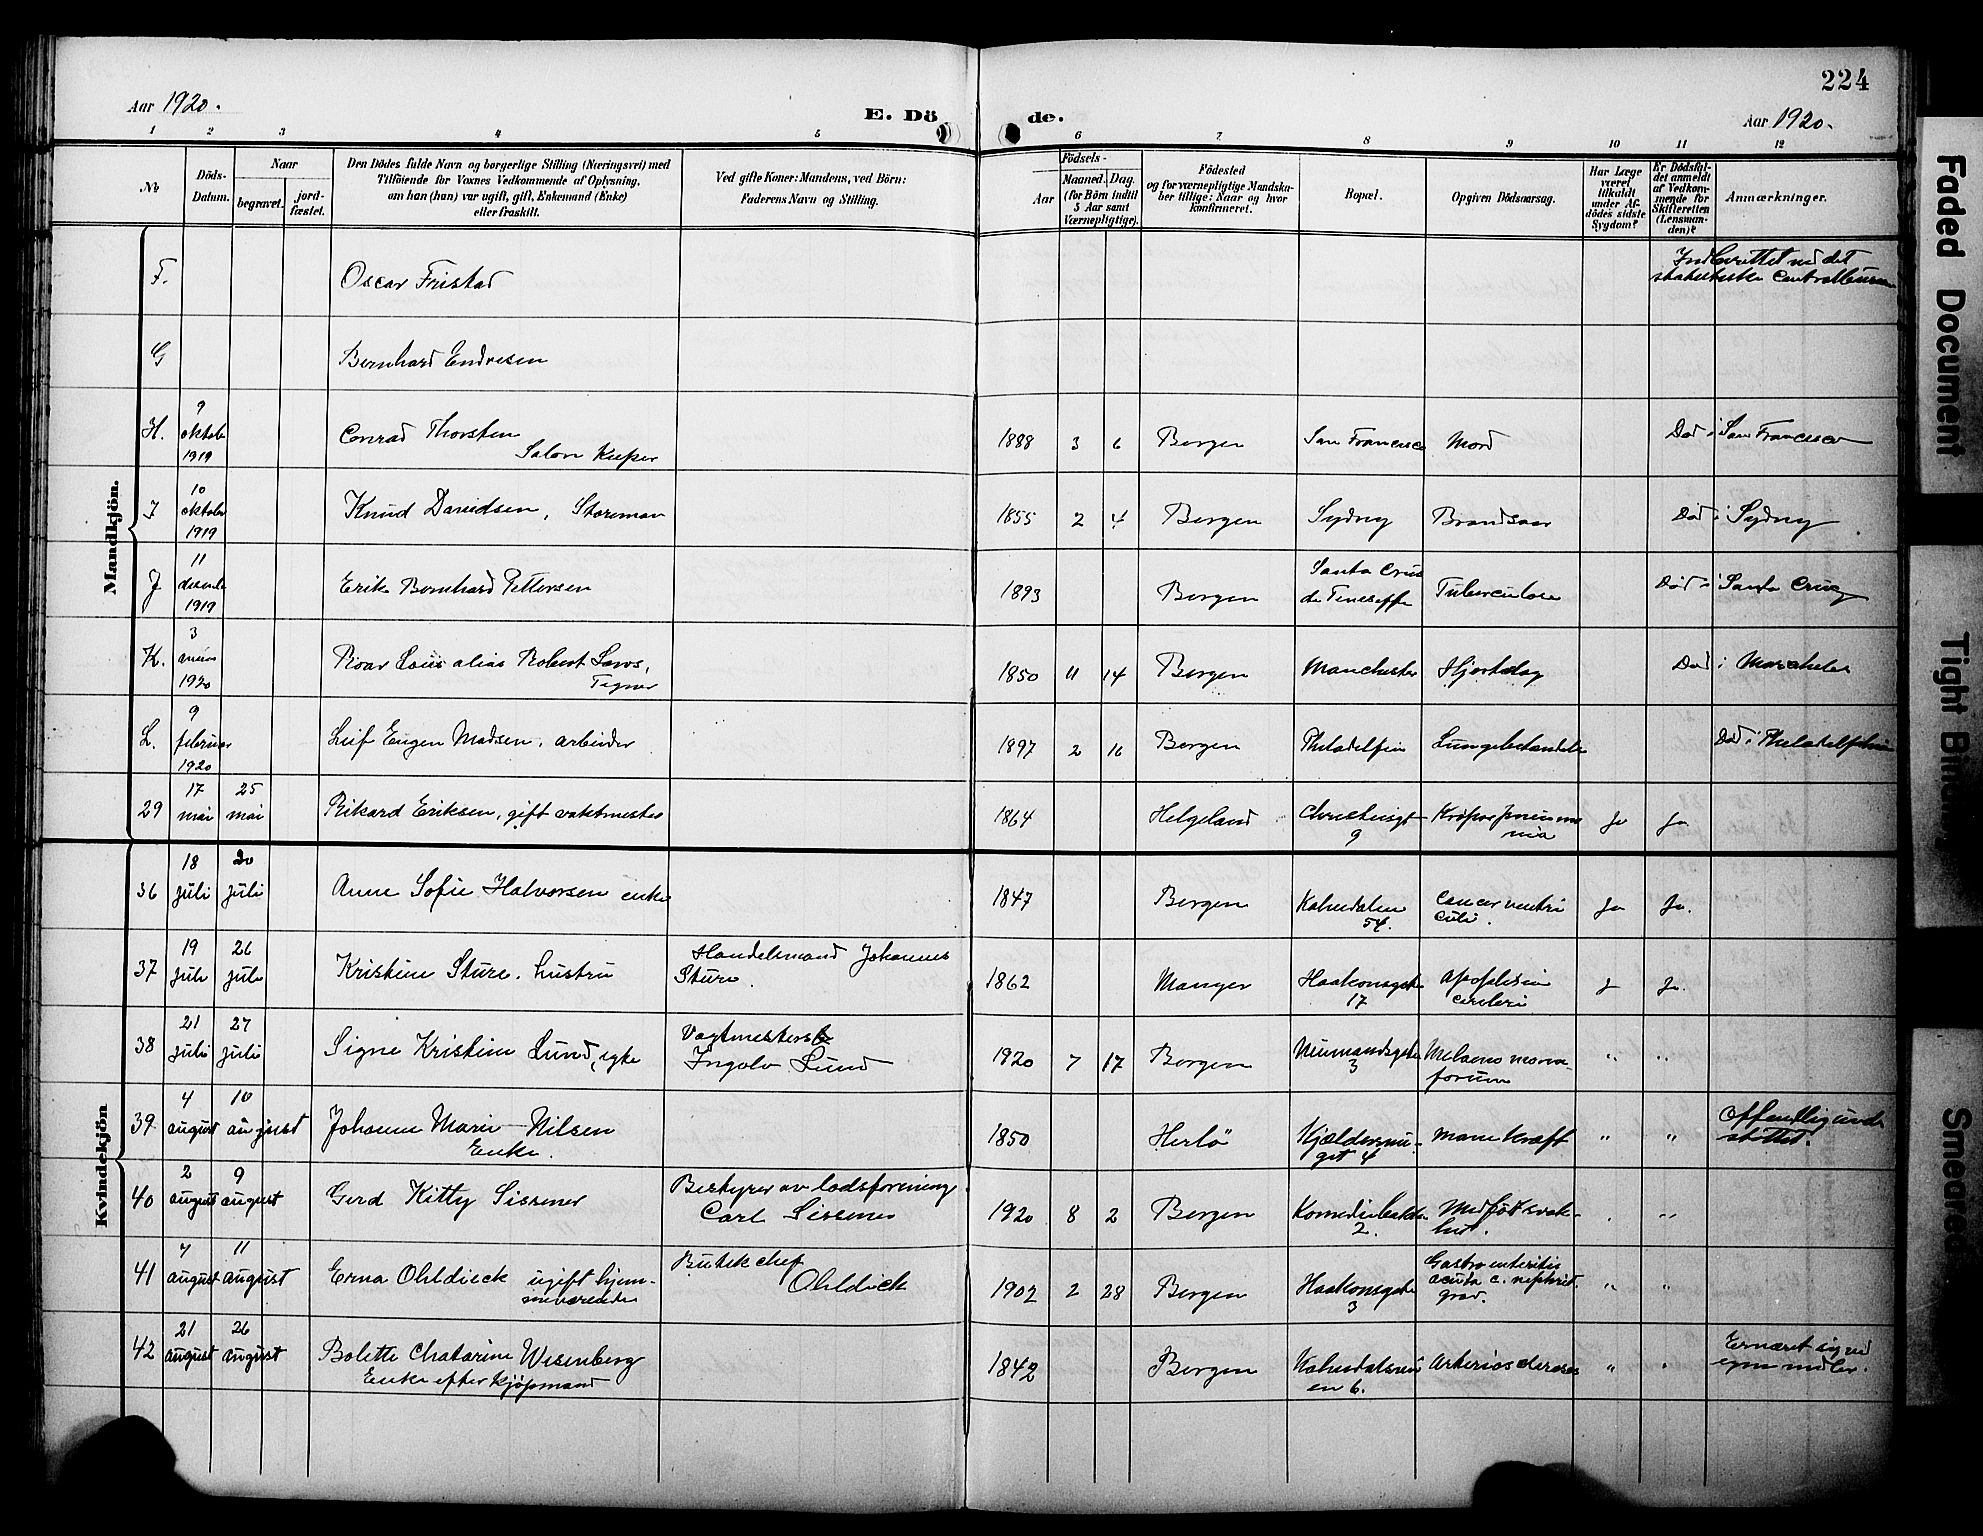 224
Aar 1920.
E. Dö de.
Aar 1920.
1 2 3 4 5 6 7 8 9 10 11 12
No
Döds-
Datum.
Naar
begravet.
jord-
fæstet.
Den Dödes fulde Navn og borgerlige Stilling (Næringsvei) med
Tilföiende for Voxnes Vedkommende af Oplysning,
om han (hun) var ugift, gift, Enkemand (Enke)
eller fraskilt.
Ved gifte Koner: Mandens, ved Börn:
Faderens Navn og Stilling.
Födsels-
Aar
Maaned. Dag.
(for Börn indtil
5 Aar samt
Værnepligtige).
Födested
og for værnepligtige Mandska-
ber tillige: Naar og hvor
konfirmeret.
Bopæl.
Opgiven Dödsaarsag.
Har Læge
været
tilkaldt
under Af-
dödes sidste
Sygdom?
Er Dödsfal-
det anmeldt
af Vedkom-
mende for
Skifteretten
(Lensman-
den)?
Anmærkninger.
Mandkjön.
F. Oscar Fristad
Indberettet ved det
statistiske Centralbureau
G Bernhard Endresen
H. 9 oktobr 1919 Conrad Thorsten
Salon Keeper
1888 3 6 Bergen San Francisco Mord Död i San Francisco
I 10 oktobr 1919 Knud Davidsen, Storeman 1855 2 4 Bergen Sydney Brandsaar Död i Sydney
J 11 1919 Erik Bernhard Pettersen 1893 Bergen Santa Cruz
de Teneriffe Tuberculose Död i Santa Cruz
K. 3 1920 Roar alias Robert
Tegner
1850 11 14 Bergen Manchester Hjerteslag Död i
L. 9 februar 1920 Leif Eugen Madsen, arbeider 1897 2 16 Bergen Philadelfia Död i Philadelphia
29 17 mai 25 mai Rikard Eriksen, gift vaktmester 1864 Helgeland Christiesgt
9 ja ja
Kvindekjön
36 18 juli 20 juli Anne Sofie Halvorsen enke 1847 Bergen Kalvedalen
54. Cancer ventri
culi. ja ja.
37 19 juli 26 juli Kristine Sture, hustru Handelsmand Johannes
Sture. 1862 Manger Haakonsgate
17 Apoplexia
cerebri j ja.
38 21 juli 27 juli Signe Kristine Lund, egte Vagtmester
Ingolv Lund 1920 7 17 Bergen Neumandsgate
3 Melaena neona-
torum " "
39 4 august 10 august Johanne Marie Nilsen
Enke. 1850 Herlö
4 " " Offentlig under
støttet.
40 2 august 9 august Gerd Kitty Sissener Bestyrer av lodsforening
Carl Sissener 1920 8 2 Bergen Komediebakken
2. Medfödt svak-
het. " "
41 7 august 11 august Erna Ohldieck ugift hjem-
meværende Butikchef
Ohldieck 1902 2 28 Bergen Haakonsgate
3 Gastroenteritis
acuta c. nephrit.
grav. " "
42 21 august 26 august Bolette Chatarine Wesenberg
Enke efter kjøpmand 1842 Bergen Kalvedalsvei
en 6. Arteriosclerosis " " Ernæret sig ved
egne midler.
Faded Document
Tight Binding
Smeared